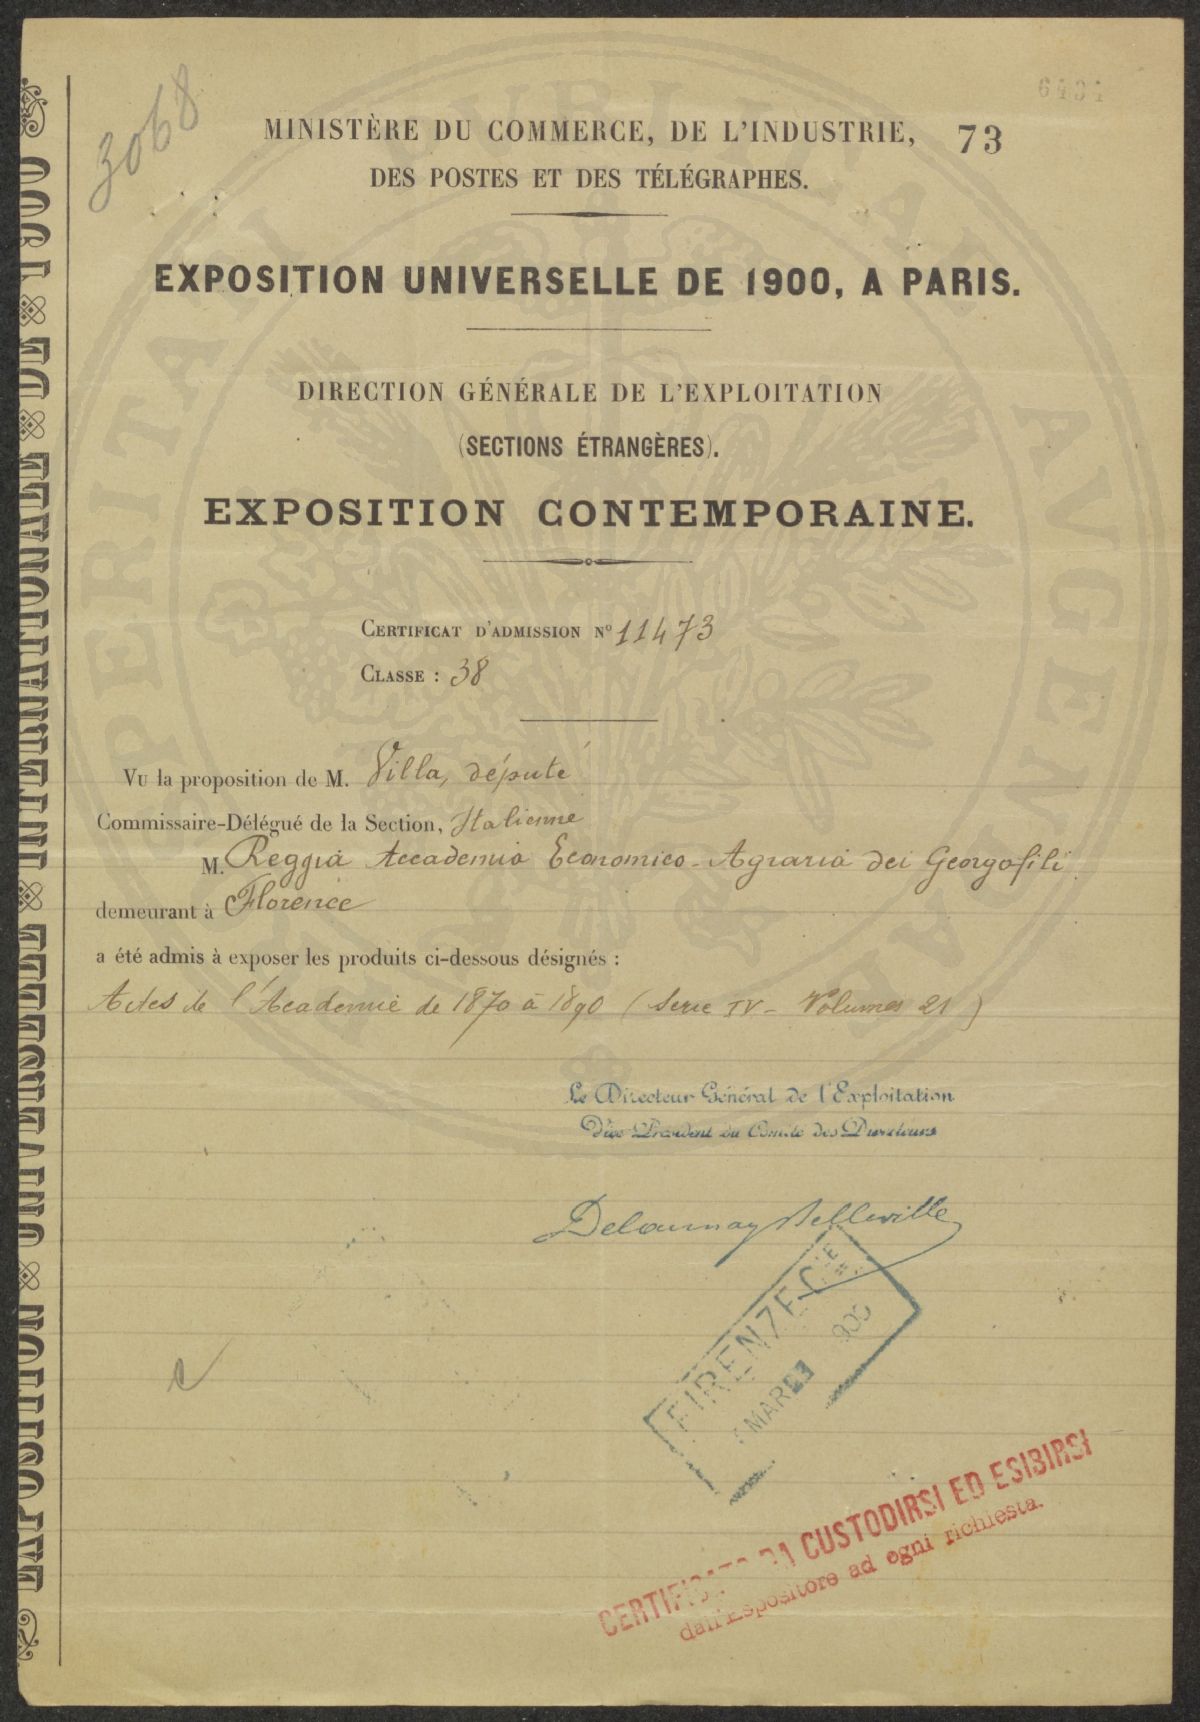 6434
3068
MINISTÈRE DU COMMERCE, DE L'INDUSTRIE, 73
DES POSTES ET DES TÉLÉGRAPHES.
EXPOSITION UNIVERSELLE DE 1900, A PARIS.
DIRECTION GÉNÉRALE DE L'EXPLOITATION
(SECTIONS ÉTRANGÈRES).
EXPOSITION CONTEMPORAINE.
CERTIFICAT D'ADMISSION Nº 11473
CLASSE : 38
VU la proposition de M. Villa, député
Commissaire-Délégué de la Section, Italienne
M. Reggia Accademia Economico-Agraria dei Georgofili
demeurant à Florence
a été admis à exposer les produits ci-dessous désignés :
Actes de l'Academie de 1870 à 1890 (Serie IV - Volumes 21)
Le Directeur Général de l'Exploitation
Vice Président du Comité des Directeurs
Delaunay Belleville
FIRENZE
MAR
CERTIFICATO DA CUSTODIRSI ED ESIBIRSI
dall'Espositore ad ogni richiesta.
EXPOSITION UNIVERSELLE INTERNATIONALE DE 1900
PROSPERITATI PUBLICAE AVGENDAE